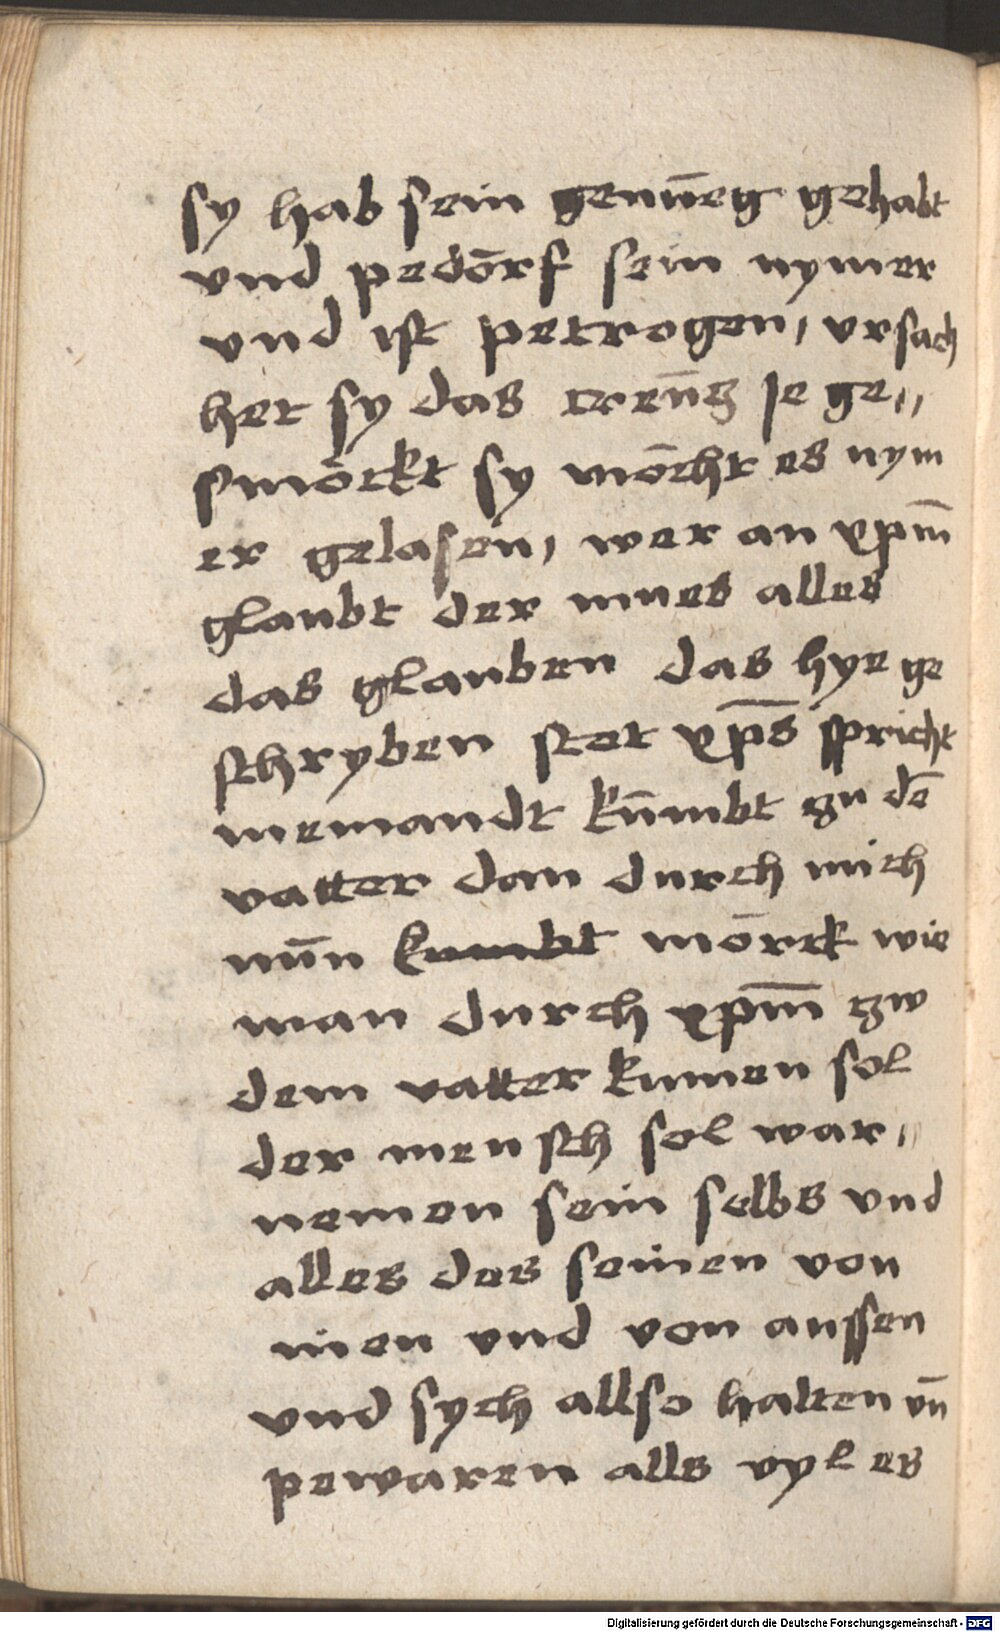 sy hab sein genu̅eg gehabt
vnd pedo̅rf sein nymer
vnd ist petrogen, vrsach
het sy das tren̅g ie ge,,
smo̅ckt sy mo̅cht es nym
er gelasen, wer an xpm̅
glaubt der mues alles
das glauben das hye ge
schryben stet xp̅s spricht
niemandt ku̅mbt zu de̅
vatter dan durch mich
nu̅n kumbt mo̅rck wie
man durch xpm̅ zw
dem vatter kumen sol
der mensch sol war,,
nemen sein selbs vnd
alles des seinen von
inen vnd von aussen
vnd sych allso halten vn̅
pewaren alls vyl es
Digitalisierung gefördert durch die Deutsche Forschungsgemeinschaft - DFG